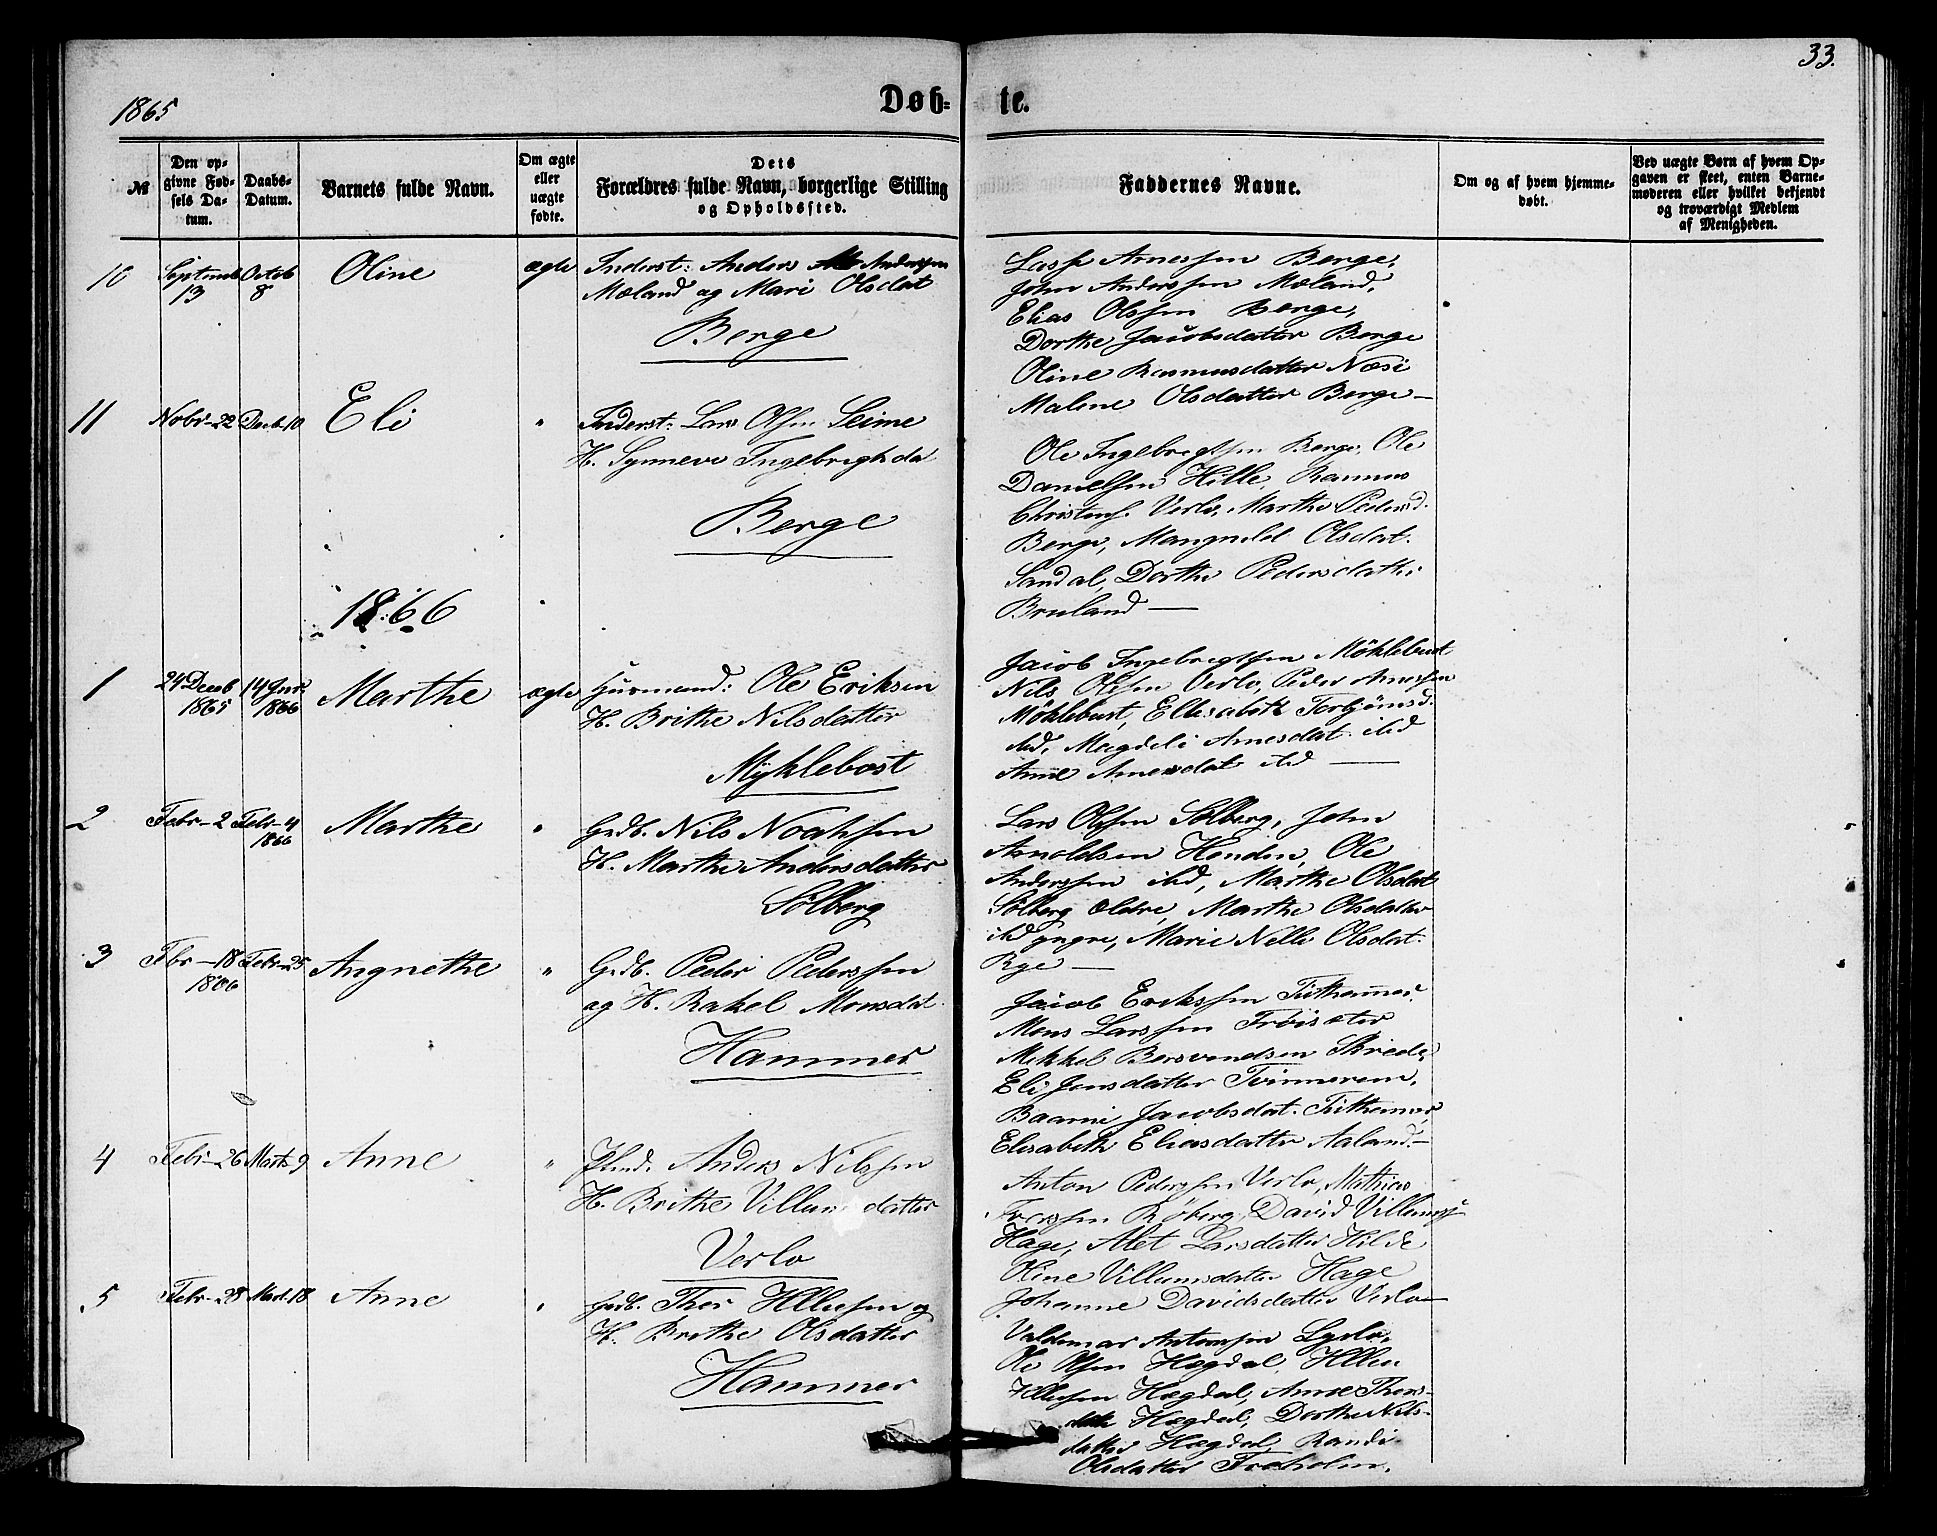 33.
1865
Døb-
te.
№
Den op-
givne Fød-
sels Da-
tum.
Daabs-
Datum.
Barnets fulde Navn.
Om ægte
eller
uægte
fødte.
Dets
Forældres fulde Navn, borgerlige Stilling
og Opholdssted.
Faddernes Navne.
Om og af hvem hjemme-
døbt.
Ved uægte Børn af hvem Op-
gaven er skeet, enten Barne-
moderen eller hvilket bekjendt
og troværdigt Medlem
af Menigheden.
10
Septemb
13
Octob
8
Oline
ægte
Inderst: Anders Anderssen
Mæland og Mari Olsdat
Berge
Lasse Arnessen Berge,
John Anderssen Mæland,
Elias Olssen Berge,
Dorthe Jacobsdatter Berge
Oline Rasmusdatter Næse
Malene Olsdatter Berge—
11
Nobr-22
Decb-10
Eli
"
Inderst: Lars Olsen Seime
H. Synneve Ingebrigtsda
Berge
Ole Ingebrigtsen Berge, Ole
Danielsen Hille, Rasmus
Christens. Verlo, Marthe Pedersd.
Berge, Mangnild Olsdat.
Sandal, Dorthe Pedersdatter
Bruland—
1866
1
24 Decb
1865
14 Jnr.
1866
Marthe
ægte
Huusmand: Ole Eriksen
H. Brithe Nilsdatter
Myklebost
Jacob Ingebrigtsen Möklebust
Nils Olssen Verlo, Peder Arnessen
Möklebust, Ellisabeth Torbjörnsd.
ibd, Magdeli Arnesdat. ibd
Anne Arnesdat ibd—
2
Febr-2
Febr-4
1866
Marthe
"
Grdb. Nils Noahsen
H. Marthe Andersdatter
Sölberg
Lars Olssen Sölberg, John
Arnoldsen Henden, Ole
Anderssen ibd, Marthe Olsdat
Sölberg ældre, Marthe Olsdatter
ibd yngre, Marie Nelle Olsdat.
Rye—
3
Fbr-18
1866
Febr-25
Angnethe
"
Grdb. Peder Pederssen
og H. Rakel Monsdat.
Hammer
Jacob Erikssen Tüthammer
Mons Larssen Tröisæter
Mikkel Bersvendsen Skrede,
Eli Jonsdatter Tvinnerem,
Jacobsdat. Tüthammer
Elisabeth Eliasdatter Aaland—
4
Febr-26
Marts 9
Anne
"
Anders Nilssen
H. Brithe Villumsdatter
Verlo
Anton Pederssen Verlo, Mathias
Röberg, David Villumss
Hage, Alet Larsdatter Hilde
Oline Villumsdatter Hage
Johanne Davidsdatter Verlo—
5
Febr-28
Mart. 18
Anne
"
Grdb. Thor Illussen og
H. Brithe Olsdatter
Hammer
Valdemar Antonssen Lyslo,
Ole Olsen Hægdal, Illu
Illussen Hægdal, Anne Thors-
datt Hægdal, Dorthe Nils-
datter Hægdal, Randi
Olsdatter Froholm.